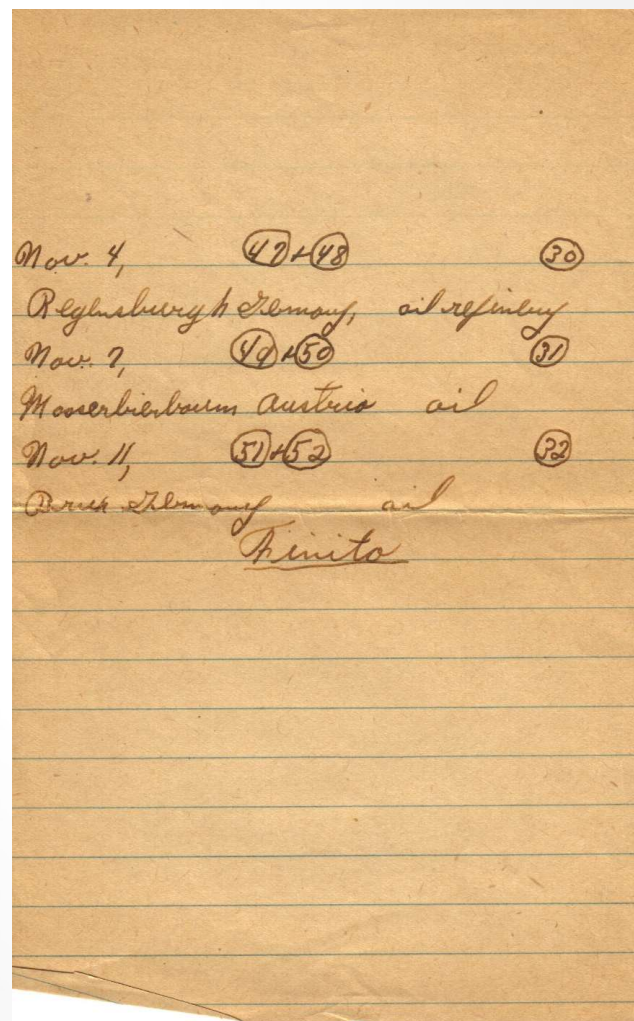 Nov. 4, 47 + 48 30
Regensburgh Germany, oil refinery
Nov. 7, 49 + 50 31
Mooserbierbaum Austria oil
Nov. 11, 51 + 52 32
Brux Germany oil
Finito